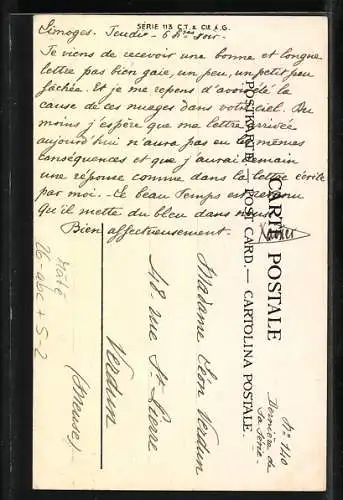 SÉRIE 113 C.T. & CIE A.G.
Limoges. Jeudi - 6 h soir
Je viens de recevoir une bonne et longue
lettre pas bien gaie, un peu, un petit peu
fâchée. Et je me repens d'avoir été la
cause de ces nuages dans votre ciel. Du
moins j'espère que ma lettre arrivée
aujourd'hui n'aura pas eu les mêmes
conséquences et que j'aurai demain
une réponse comme dans la lettre écrite
par moi. - Le beau temps est revenu
Qu'il mette du bleu dans nous
Bien affectueusement.
CARTE POSTALE
POSTKARTE. — POST CARD. — CARTOLINA POSTALE.
No 140
Dernière de
la série.
Madame Léon Verdun
48. rue St. Pierre
Verdun
(Meuse).
26 abc + 5-2